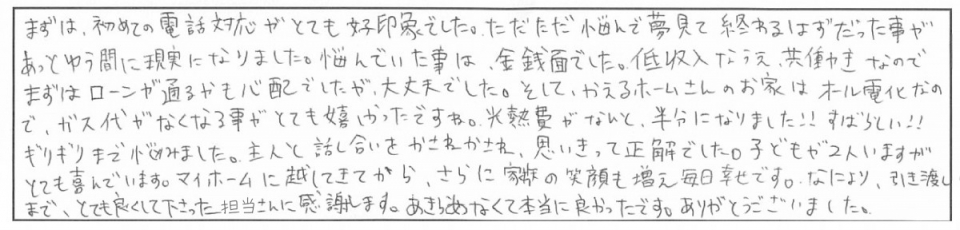 まずは、初めての電話対応がとても好印象でした。ただただ悩んで夢見て終わるはずだった事が
あっとゆう間に現実になりました。悩んでいた事は、金銭面でした。低収入なうえ、共働きなので
まずはローンが通るかも心配でしたが、大丈夫でした。そして、かえるホームさんのお家はオール電化なの
で、ガス代がなくなる事がとても嬉しかったですね。光熱費がなんと、半分になりました!!すばらしい!!
ギリギリまで悩みました。主人と話し合いをかされかされ、思いきって正解でした。子どもが2人いますが
とても喜んでいます。マイホームに越してきてから、さらに家族の笑顔も増え毎日幸せです。なにより、引き渡し
まで、とても良くして下さった担当さんに感謝します。あきらめなくて本当に良かったです。ありがとうございました。